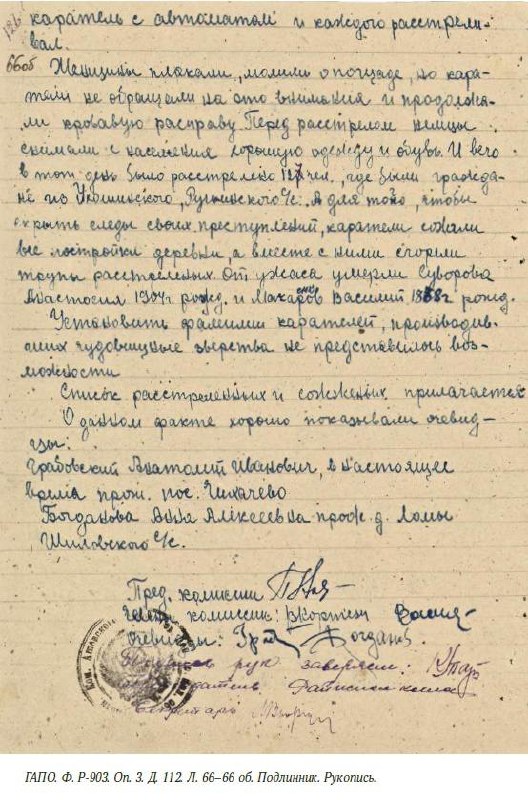 каратель с автоматом и каждого расстрели-
вал.
66об
Женщины плакали, молили о пощаде, но кара-
тели не обращали на это внимания и продолжа-
ли кровавую расправу. Перед расстрелом немцы
снимали с населения хорошую одежду и обувь. И всего
в тот день было расстреляно 127 чел., где были гражда-
не из с/с. А для того, чтобы
скрыть следы своих преступлений, каратели сожгли
все постройки деревни, а вместе с ними сгорели
трупы расстелянных. От ужаса умерли Суворова
Анастасия 1904г рожд. и Макаров Василий 1868г рожд.
Установить фамилии карателей, производив-
ших чудовищные зверства не представилось воз-
можности
Список расстрелянных и сожженых прилагается
О данном факте хорошо показывали очевид-
цы:
Грабовский Анатолий Иванович, в настоящее
время прож. пос. Чихачево
Богданова Анна Алексеевна прож. д. Ломы
Шиловского с/с.
Пред. комиссии
комиссии:
очевидцы: Богдан
рук заверяем:
Секретарь
ГАПО. Ф. Р-903. Оп. 3. Д. 112. Л. 66–66 об. Подлинник. Рукопись.